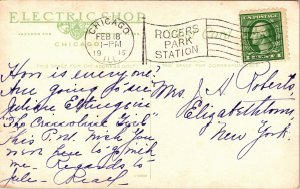 ELECTRIC SHOP
CHICAGO
CHICAGO
FEB 18
1-PM
1915
ILL.
ROGERS
PARK
STATION
U.S. POSTAGE
How is every one?
Are going to see
Julian Eltinge in
"The Crinoline Girl"
This P.M. Wish you
were here to go with
me. Regards to
Mrs. J. A. Roberts,
Elizabethtown,
New York.